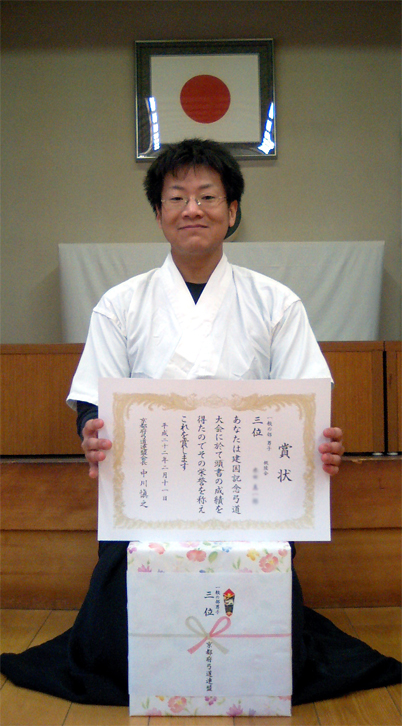 賞状
一般の部 男子
三位
あなたは建国記念弓道
大会に於て頭書の成績を
得たのでその栄誉を称え
これを賞します
平成二十二年二月十一日
京都府弓道連盟会長 中川慎之
一般の部 男子
三位
京都府弓道連盟